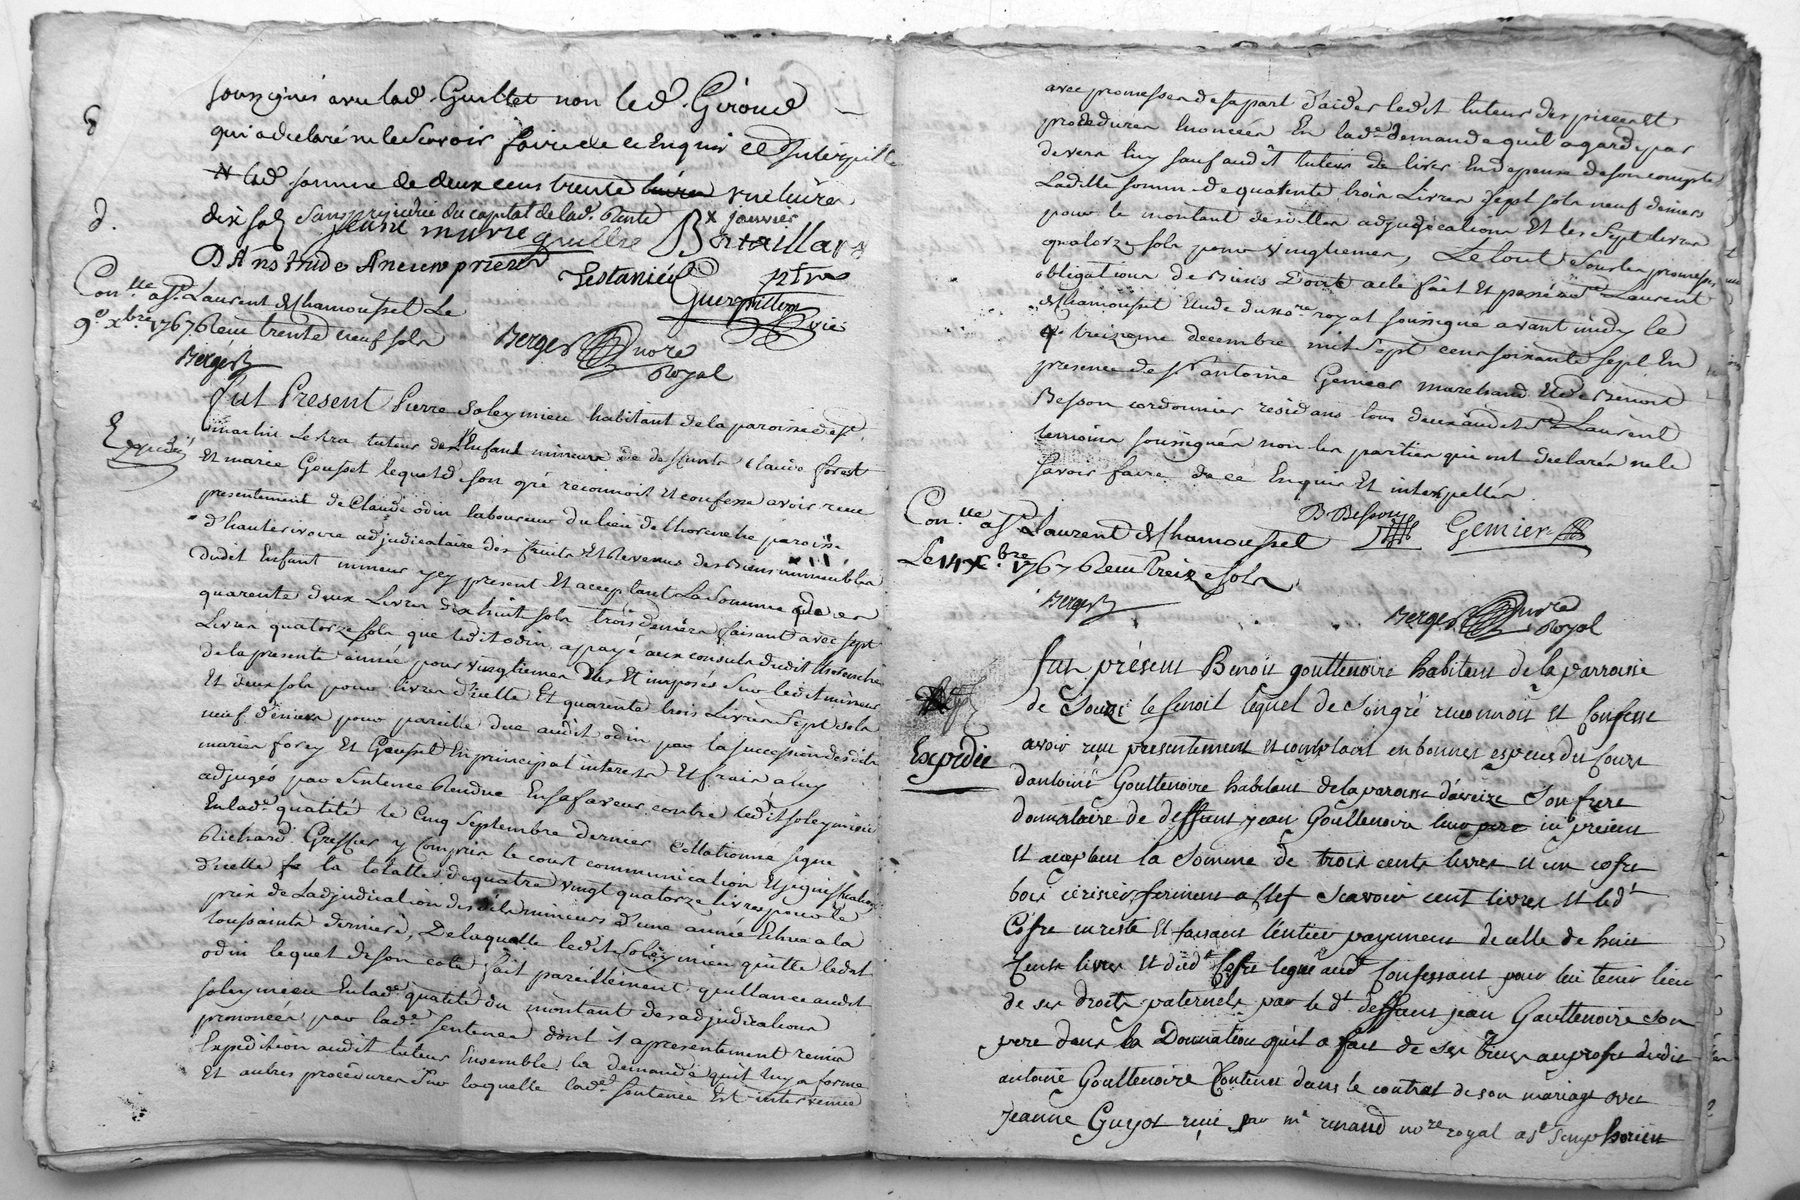 soussignés avec lad. Guillet non led. Giroud
qui a declaré ne le scavoir faire de ce Enquis et Interpellé
lad. somme de deux cens trente livres une livre
dix sols sans prejudice du capital de lad. Rente
jeanne marie guillet Bx janvier
Bataillard
D'Anstrude Ancien prieur
Guerpillon
Con.lle a St. Laurent de Chamousset Le
9e xbre 1767 Reçu trente neuf sols
Berger
Berger no.re
Royal
Expedié
Fut Present Pierre Soleymieu habitant de la paroisse de St.
martin Lestra tuteur de l'Enfant mineur de defunts Claude forest
Et marie Gousset lequel de son gré reconnoit Et confesse avoir reçu
presentement de Claude odin laboureur du lieu de lhorenche paroisse
d'hauterivoire adjudicataire des fruits Et Revenus des Biens immeubles
dudit Enfant mineur ycy present Et acceptant La Somme de
quarente deux Livres dix huit sols trois deniers faisant avec sept
Livres quatorze sols que ledit odin a payé aux consuls dudit
de la presente année pour vingtiemes Et imposés Sur ledit mineur
Et deux sols pour livres d'icelle Et quarente trois Livres Sept sols
neuf deniers pour pareille due audit odin par la succession desdits
mariés forey Et Gousset En principal interests Et frais a luy
adjugés par Sentence Rendue En sa faveur contre ledit soleymieu
En lad.e qualité le Cinq Septembre dernier Collationné signé
Richard Greffier y Compris le court communication Et signiffication
d'icelle la totalle de quatre vingt quatorze livres pour le
prix de Ladjudication desdits mineurs d'une année Echue a la
toussaints derniere, De laquelle ledit Soleymieu quitte ledit
odin lequel de son coté fait pareillement quittance audit
soleymieu En lad.e qualité du montant des adjudications
prononcées par lad.e sentence dont il a presentement remis
Expedition audit tuteur Ensemble la demande qu'il luy a formé
Et autres procedures Sur laquelle lad.e sentence Est intervenue
avec promesse de sa part d'aider ledit tuteur des pieces Et
procedures Enoncées En lad.e demande qu'il a gardé par
devers luy sauf audit tuteur de livrer En depense de son compte
Laditte somme de quarente trois Livres Sept sols neuf deniers
pour le montant desdittes adjudications Et les Sept livres
quatorze sols pour vingtiemes, Le tout Sous les promesses
obligations de Biens Dont acte fait Et passé a St. Laurent
de Chamousset Etude du no.re royal soussigné avant midy le
treizieme decembre mil Sept cens soixante sept En
presence de Sr. antoine Gemier marchand Et de Benoit
Besson cordonnier residans tous deux audit St. Laurent
temoins soussignés non les parties qui ont declarés ne le
savoir faire de ce Enquis Et interpellés.
B Besson Gemier
Con.lle a St. Laurent de Chamousset
Le xbre 1767 Reçu treize sols
Berger
Berger no.re
Royal
Expedié
fut présent Benoit gouttenoire habitant de la parroisse
de Souzi lequel de son gré reconnoit et Confesse
avoir reçu presentement et comptant en bonnes especes du Cours
d'antoine Gouttenoire habitant de la paroisse d'aveize Son frere
donnataire de deffunt jean Gouttenoire leur pere ici présent
et acceptant la Somme de trois cents livres et un cofre
bois cerisier fermant a clef Scavoir cent livres et led.t
Cofre en reste et faisant l'entier payement de celle de huit
Cents livres et dud.t Cofre legué aud.t Confessant pour lui tenir lieu
de ses droits paternels par le d.t deffunt jean Gouttenoire son
pere dans la Donnation qu'il a fait de ses biens au profit dudit
antoine Gouttenoire Contenu dans le contrat de son mariage avec
jeanne Guyot reçu par m.e renaud no.re royal a St. Simphorien